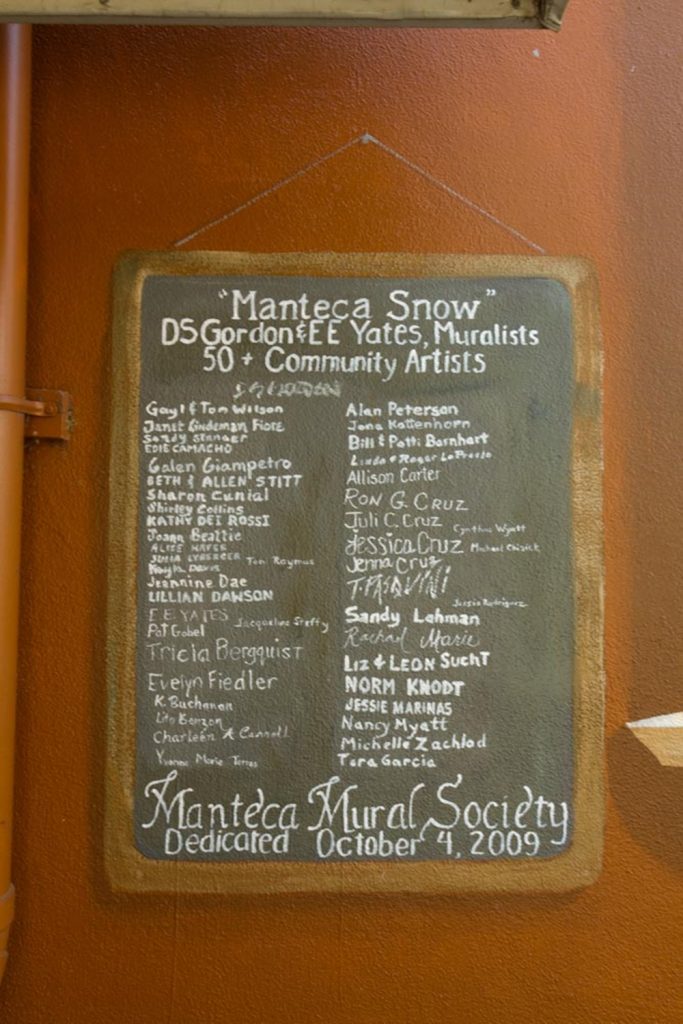 "Manteca Snow"
DS Gordon & EE Yates, Muralists
50 + Community Artists
Gayl & Tom Wilson
Janet Lindeman Fiore
Sandy Stanger
EDIE CAMACHO
Galen Giampetro
BETH & ALLEN STITT
Sharon Cunial
Shirley Collins
KATHY DEI ROSSI
Joann Beattie
ALICE
JULIA
Tom Raymus
Kayla Davis
Jeannine Dae
LILLIAN DAWSON
E E YATES
Jacqueline Steffy
Pat Gobel
Tricia Bergquist
Evelyn Fiedler
K. Buchanan
Lito Benzon
Charleen A Cannell
Yvonne Marie Torres
Alan Peterson
Jona Kattenhorn
Bill & Patti Barnhart
Linda & Roger LoPresto
Allison Carter
RON G. CRUZ
Juli C. Cruz
Cynthia Wyatt
Jessica Cruz
Michael Chisick
Jenna Cruz
T. PASQUINI
Jessie Rodriguez
Sandy Lahman
Rachael Marie
LIZ & LEON SUCHT
NORM KNODT
JESSIE MARINAS
Nancy Myatt
Michelle Zachlod
Tara Garcia
Manteca Mural Society
Dedicated October 4, 2009